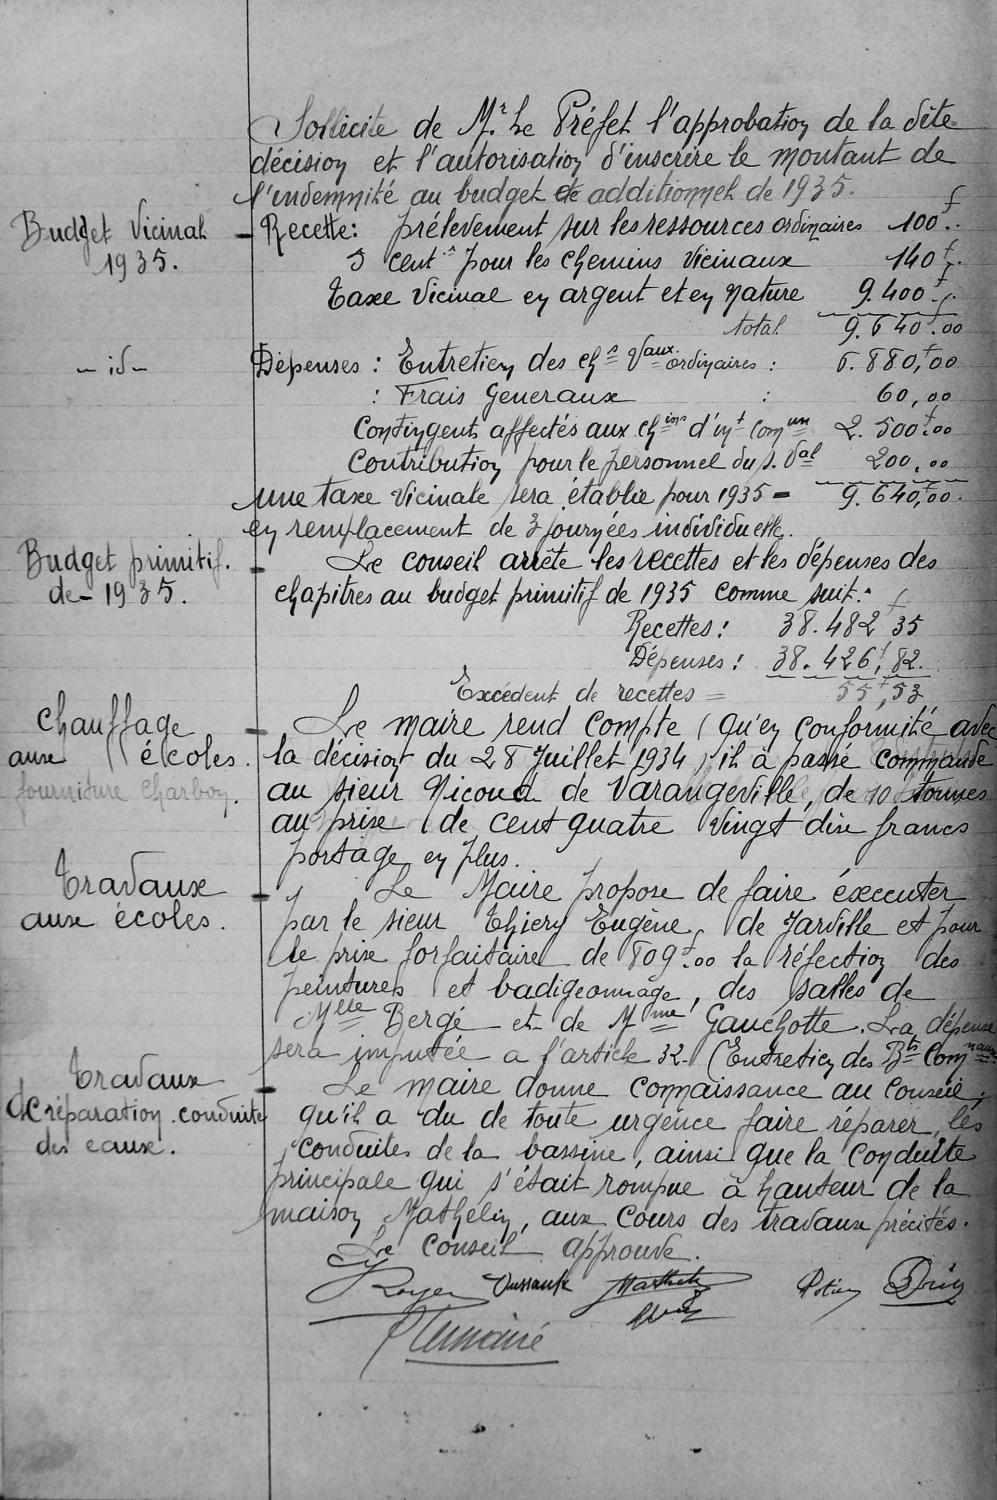 Sollicite de Mr Le Préfet l'approbation de la dite
décision et l'autorisation d'inscrire le montant de
l'indemnité au budget de additionnel de 1935.
Budget Vicinal
1935.
Recette: prélevement sur les ressources ordinaires 100f..
5 cents pour les chemins Vicinaux 140f.
Taxe Vicinal en argent et en nature 9.400f.
total 9.640f.00
- id -
Dépenses : Entretien des chs Vaux ordinaires : 6.880f,00
: Frais Generaux : 60,00
Contingents affectés aux chins d'int Comun 2.500f.00
Contribution pour le personnel du s. Val 200,00
une taxe Vicinale sera établie pour 1935 = 9.640f,00.
en remplacement de 3 journées individuelle.
Budget primitif.
de - 1935.
Le conseil arrête les recettes et les dépenses des
chapitres au budget primitif de 1935 comme suit:
Recettes: 38.482f 35
Dépenses: 38.426f,82.
Excédent de recettes = 55f,53
Chauffage
aux écoles.
fourniture charbon.
Le maire rend compte (qu'en conformité avec
la décision du 28 Juillet 1934) il à passé commande
au sieur Nicoud de Varangeville, de 10 tonnes
au prix de cent quatre Vingt dix francs
portage en plus.
Travaux
aux écoles.
Le Maire propose de faire éxecuter
par le sieur Thiery Eugène, de Jarville et pour
le prix forfaitaire de 809f.00 la réfection des
peintures et badigeonnage, des salles de
Mlle Bergé et de Mme Gauchotte. La dépense
sera imputée a l'article 32. (Entretien des Bts Comnaux
Travaux
de réparation conduite
des eaux.
Le maire donne connaissance au Conseil,
qu'il a du de toute urgence faire réparer, les
conduites de la bassine, ainsi que la conduite
principale qui s'était rompue à hauteur de la
maison Mathélin, aux cours des travaux précités.
Le Conseil approuve.
Royer